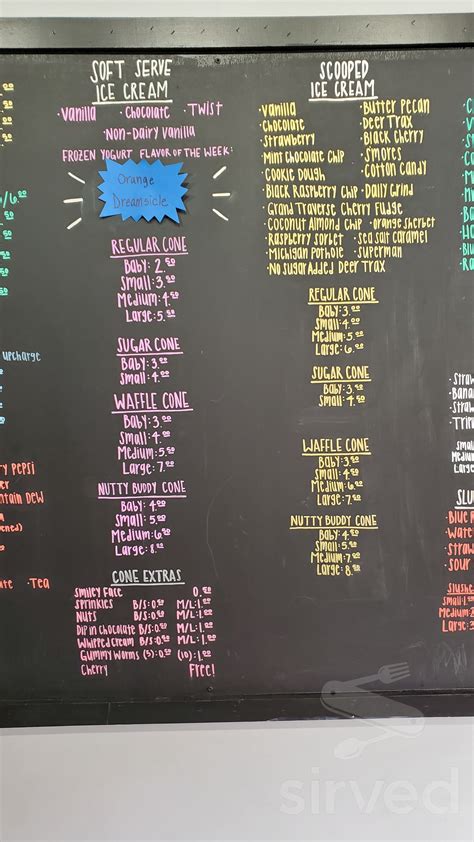 SOFT SERVE
ICE CREAM
·Vanilla · Chocolate · TWIST
·Non-Dairy Vanilla
FROZEN YOGURT FLAVOR OF THE WEEK:
Orange
Dreamsicle
REGULAR CONE
Baby: 2.50
Small: 3.
Medium: 4.50
Large: 5.
SUGAR CONE
Baby: 3.00
Small: 4.00
WAFFLE CONE
Baby: 3.
Small: 4.
Medium: 5.50
Large: 7.00
NUTTY BUDDY CONE
Baby: 4.00
Small: 5.00
Medium: 6.50
Large: 8.00
CONE EXTRAS
Smiley Face 0.50
Sprinkles B/S: 0.50 M/L: 1.00
Nuts B/S: 0.50 M/L: 1.00
Dip in Chocolate B/S: 0.50 M/L: 1.00
Whipped Cream B/S: 0.50 M/L: 1.00
Gummy Worms (5): 0.50 (10): 1.00
Cherry Free!
SCOOPED
ICE CREAM
·Vanilla ·Butter Pecan
·Chocolate ·Deer Trax
·Strawberry ·Black Cherry
·Mint Chocolate Chip ·S'mores
·Cookie Dough ·Cotton Candy
·Black Raspberry Chip ·Daily Grind
·Grand Traverse Cherry Fudge
·Coconut Almond Chip ·Orange Sherbet
·Raspberry Sorbet ·Sea Salt Caramel
·Michigan Pothole ·Superman
·No Sugar Added Deer Trax
REGULAR CONE
Baby: 3.
Small: 4.
Medium: 5.
Large: 6.
SUGAR CONE
Baby: 3.
Small: 4.
WAFFLE CONE
Baby: 3.
Small: 4.
Medium: 6.
Large: 7.
NUTTY BUDDY CONE
Baby: 4.
Small: 5.
Medium: 7.
Large: 8.
upcharge
Pepsi
Dew
· Tea
Small: 1.
Large: 3
sirved